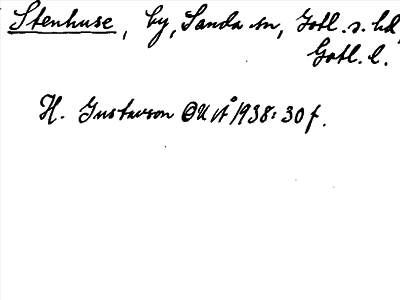 Stenhuse, by, Sanda sn, Gotl. s. hd,
Gotl. l.
H. Gustavson OUÅ 1938: 30 f.